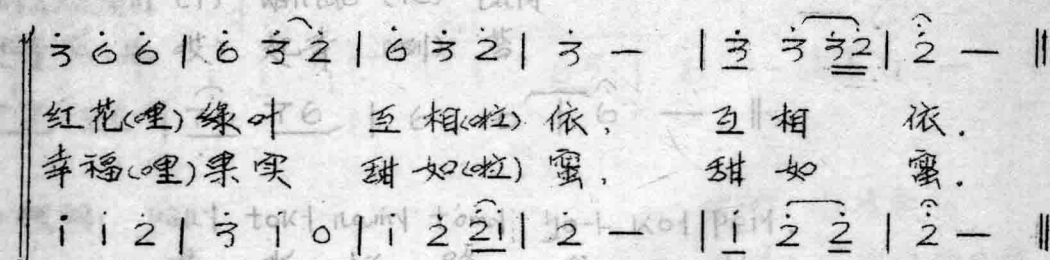 3̇ 6̇ 6̇ | 6̇ 3̇ 2̇ | 6̇ 3̇ 2̇ | 3̇ — | 3̇ 3̇ 3̇2̇ | 2̇ — ‖
红花(哩)绿叶 互相(啦)依, 互相 依.
幸福(哩)果实 甜如(啦)蜜, 甜如 蜜.
i i 2̇ | 3̇ i 0 | i 2̇ 2̇i | 2̇ — | i 2̇ 2̇ | 2̇ — ‖